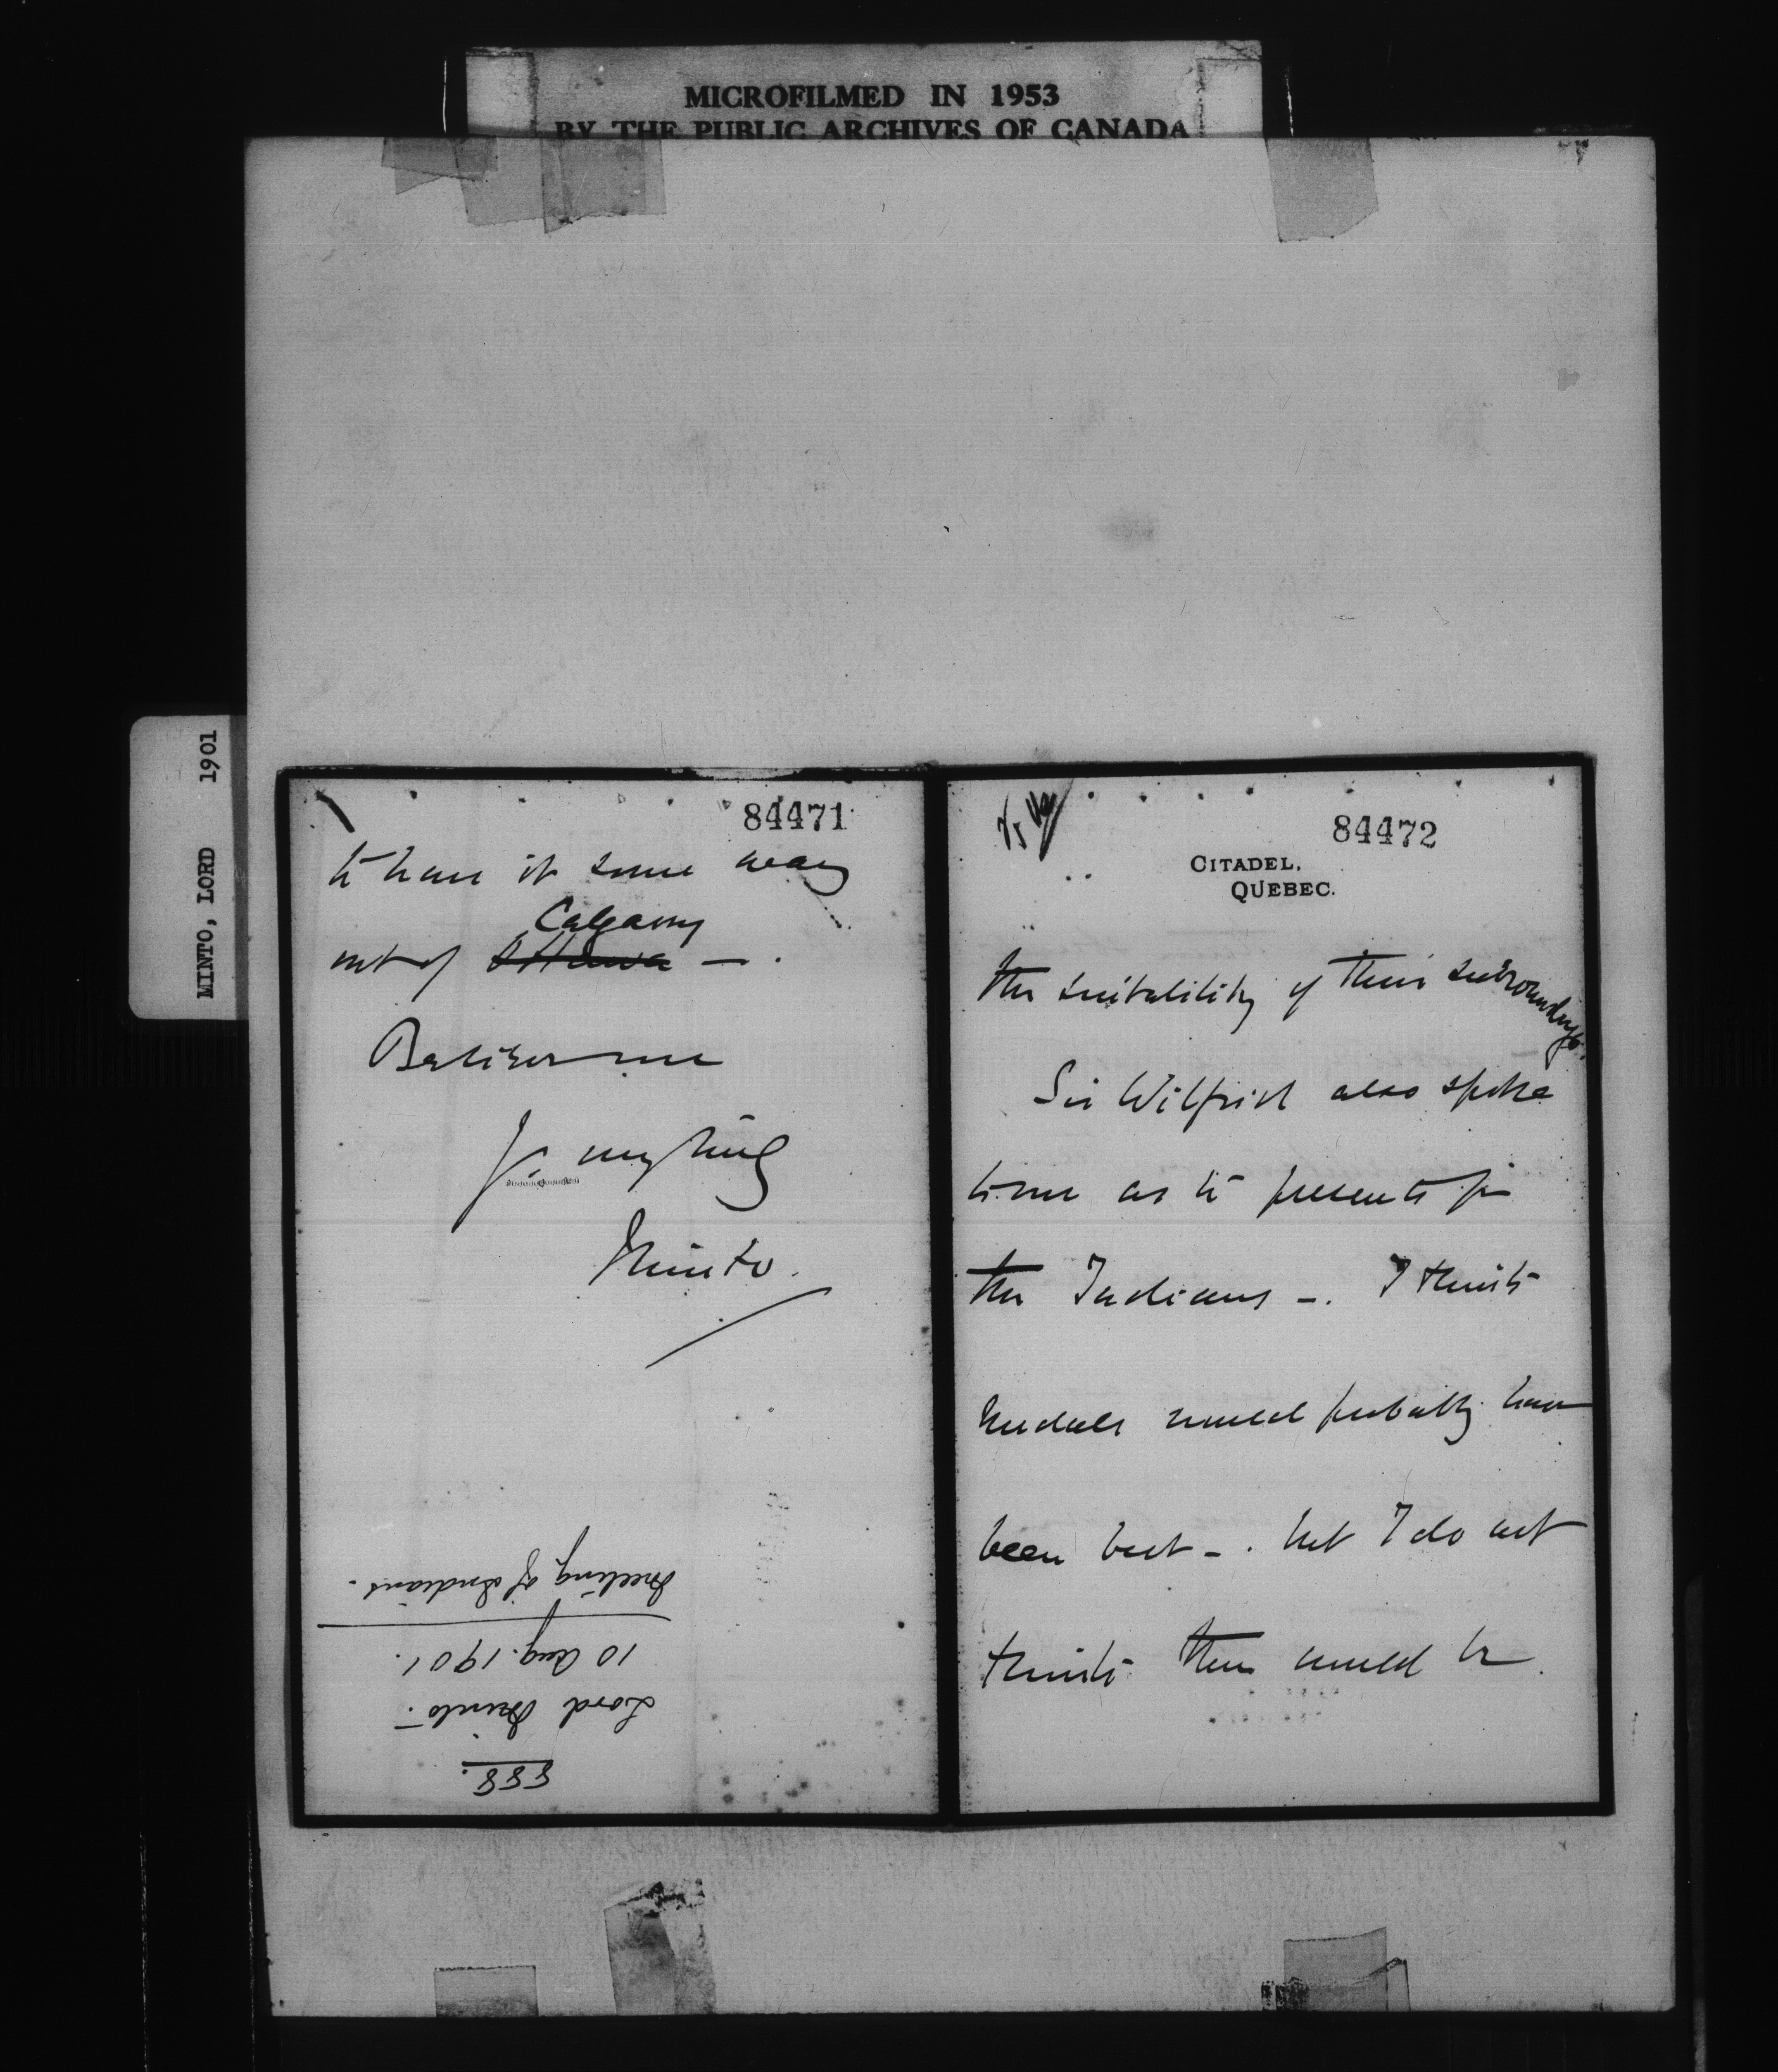 MICROFILMED IN 1953
BY THE PUBLIC ARCHIVES OF CANADA
MINTO, LORD 1901
84471
to have it some way
Calgary
out of Ottawa — .
Believe me
Yr. very truly
Minto.
Meeting of Indians.
10 Aug. 1901.
Lord Minto.
888.
84472
CITADEL,
QUEBEC.
the suitability of their surroundings.
Sir Wilfrid also spoke
to me as to presents for
the Indians — . I think
medals would probably have
been best — . but I do not
think there would be